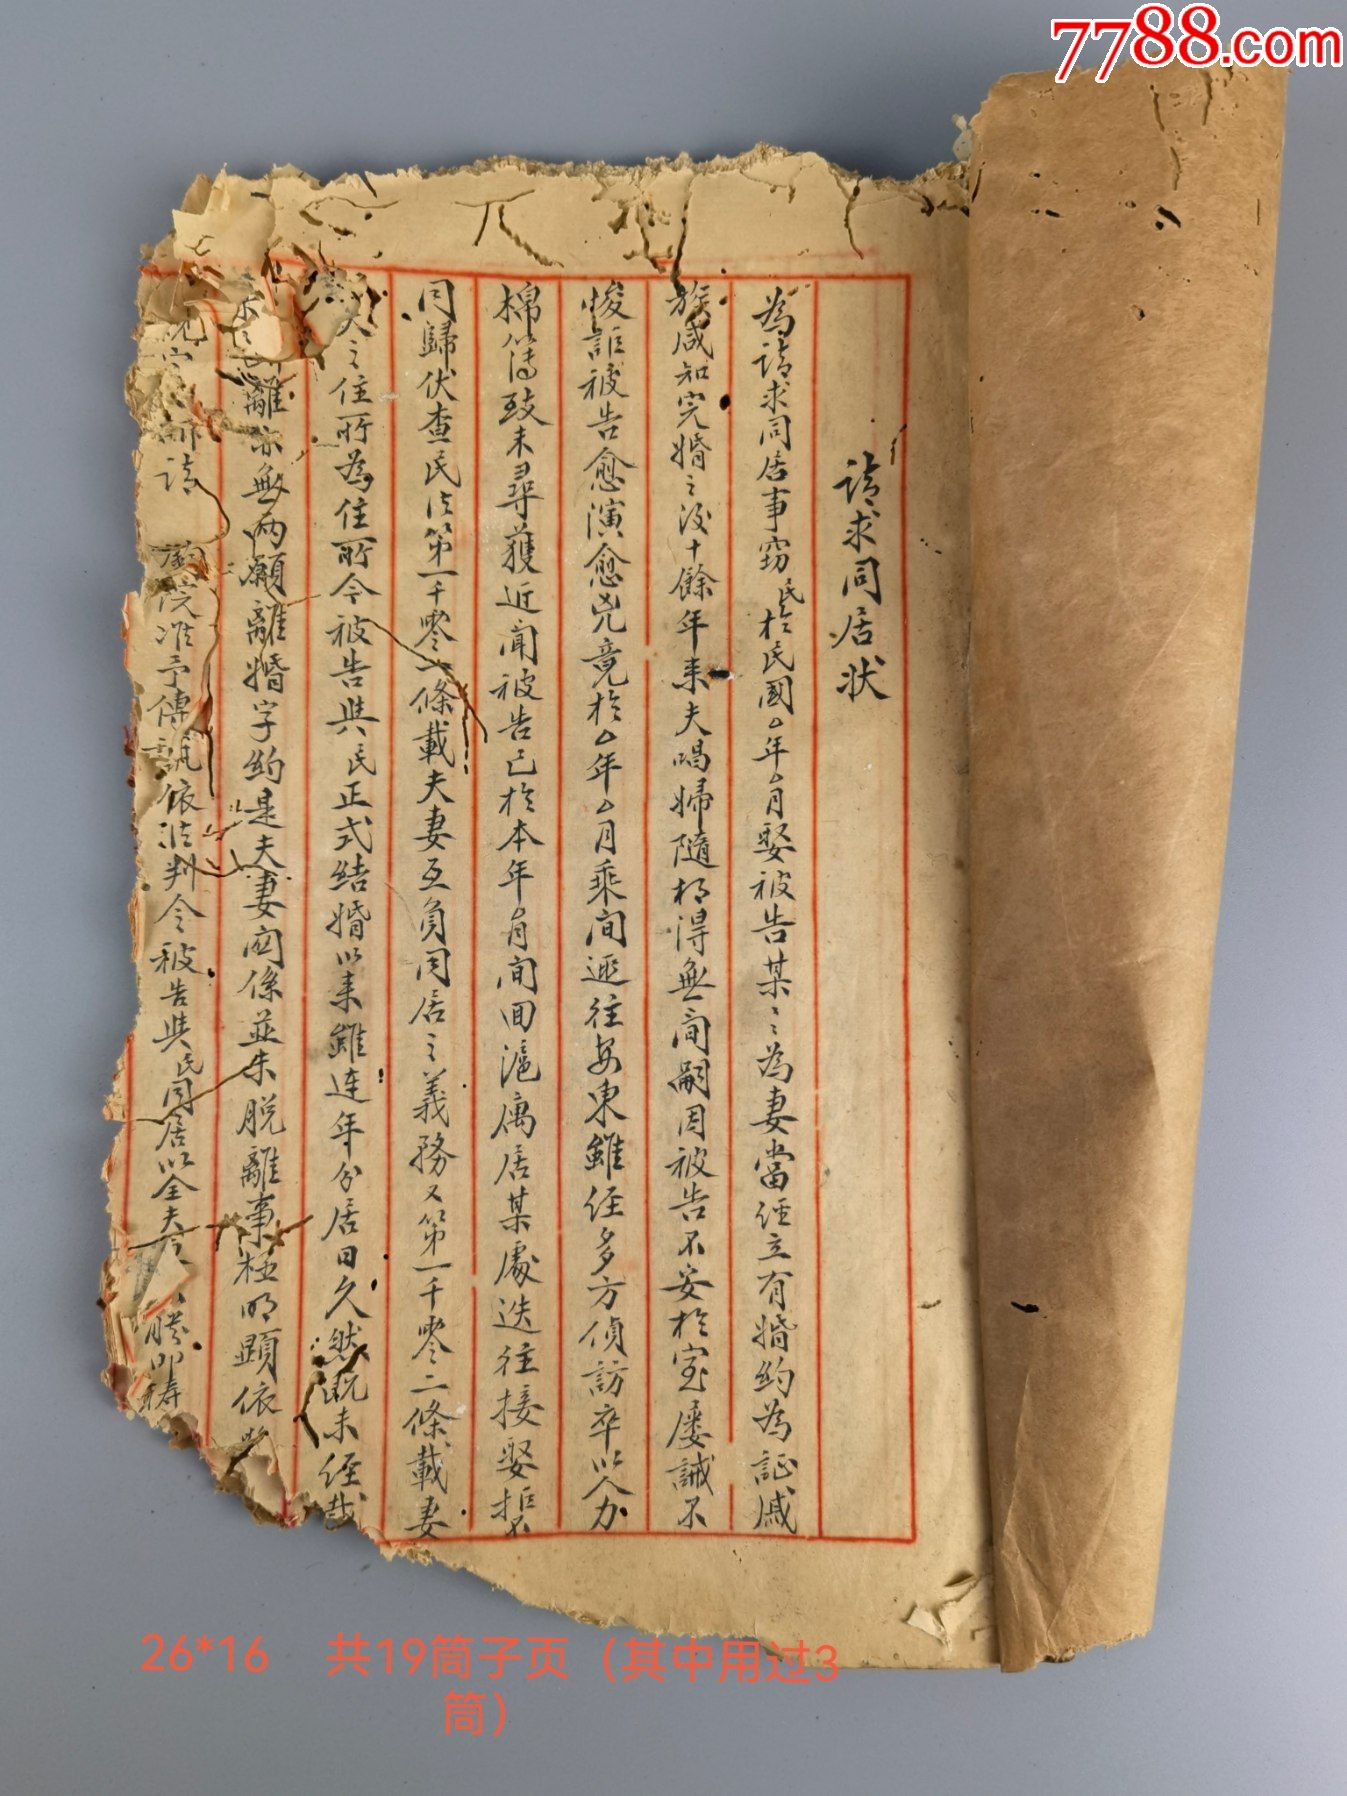 7788.com
請求同居狀
為請求同居事竊民於民國△年△月娶被告某〻為妻當經立有婚約為証戚
族咸知完婚之後十餘年來夫唱婦隨相得無間嗣因被告不安於室屢誡不
悛詎被告愈演愈兇竟於△年△月乘间遯往安東雖经多方偵訪卒以人力
棉薄致未尋獲近聞被告已於本年 月间回滬寓居某處迭往接娶拒不
同歸伏查民法第一千零一條載夫妻互負同居之義務又第一千零二條載妻
夫之住所為住所今被告與民正式结婚以來雖连年分居日久然既未經裁
離亦無兩願離婚字約是夫妻関係並未脱離事極明顯依
請 院准予傳訊依法判令被告與民同居以全夫
26*16 共19筒子页（其中用过3
筒）